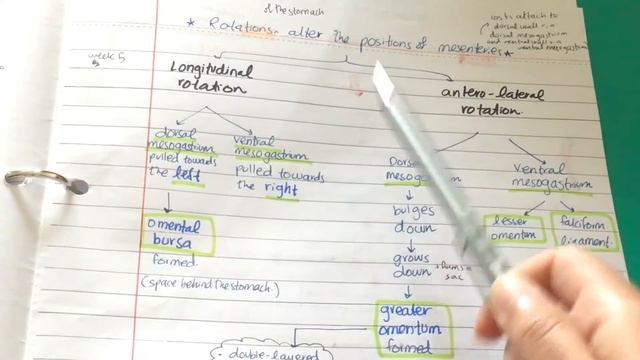 of the stomach
* Rotations alter the positions of mesenteries *
attach to
dorsal wall
dorsal mesogastrium
and ventral wall
ventral mesogastrium
week 5
Longitudinal
rotation
antero-lateral
rotation.
dorsal
mesogastrium
pulled towards
the left
ventral
mesogastrium
pulled towards
the right
omental
bursa
formed.
(space behind the stomach.)
bulges
down
grows
down
sac
greater
omentum
formed
ventral
mesogastrium
lesser
omentum
falciform
ligament.
double-layered